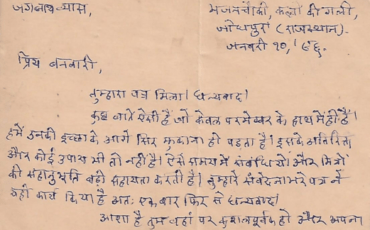 जगन्नाथ व्यास,
भजनचौकी, कल्लों की गली,
जोधपुर। (राजस्थान).
जनवरी १०, '६६.
प्रिय बनवारी,
तुम्हारा पत्र मिला। धन्यवाद।
कुछ बातें ऐसी हैं जो केवल परमेश्वर के हाथ में ही हैं।
हमें उनकी इच्छा के आगे सिर झुकाना ही पड़ता है। इसके अतिरिक्त
और कोई उपाय भी तो नहीं है। ऐसे समय में संबंधियों और मित्रों
की सहानुभूति बड़ी सहायता करती है। तुम्हारे संवेदना भरे पत्र ने
वही कार्य किया है अतः एक बार फिर से धन्यवाद।
आशा है तुम वहां पर कुशलपूर्वक हो और अपना